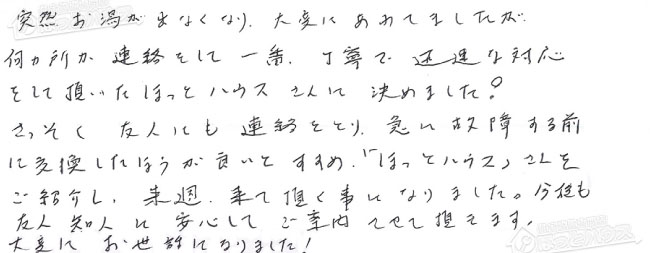 突然お湯が出なくなり、大変にあわてましたが
何カ所か連絡をして一番、丁寧で迅速な対応
をして頂いたほっとハウスさんに決めました!
さっそく友人にも連絡をとり、急に故障する前
に交換したほうが良いとすすめ、「ほっとハウス」さんを
ご紹介し、来週、来て頂く事になりました。今後も
友人知人に安心してご案内させて頂きます。
大変にお世話になりました!